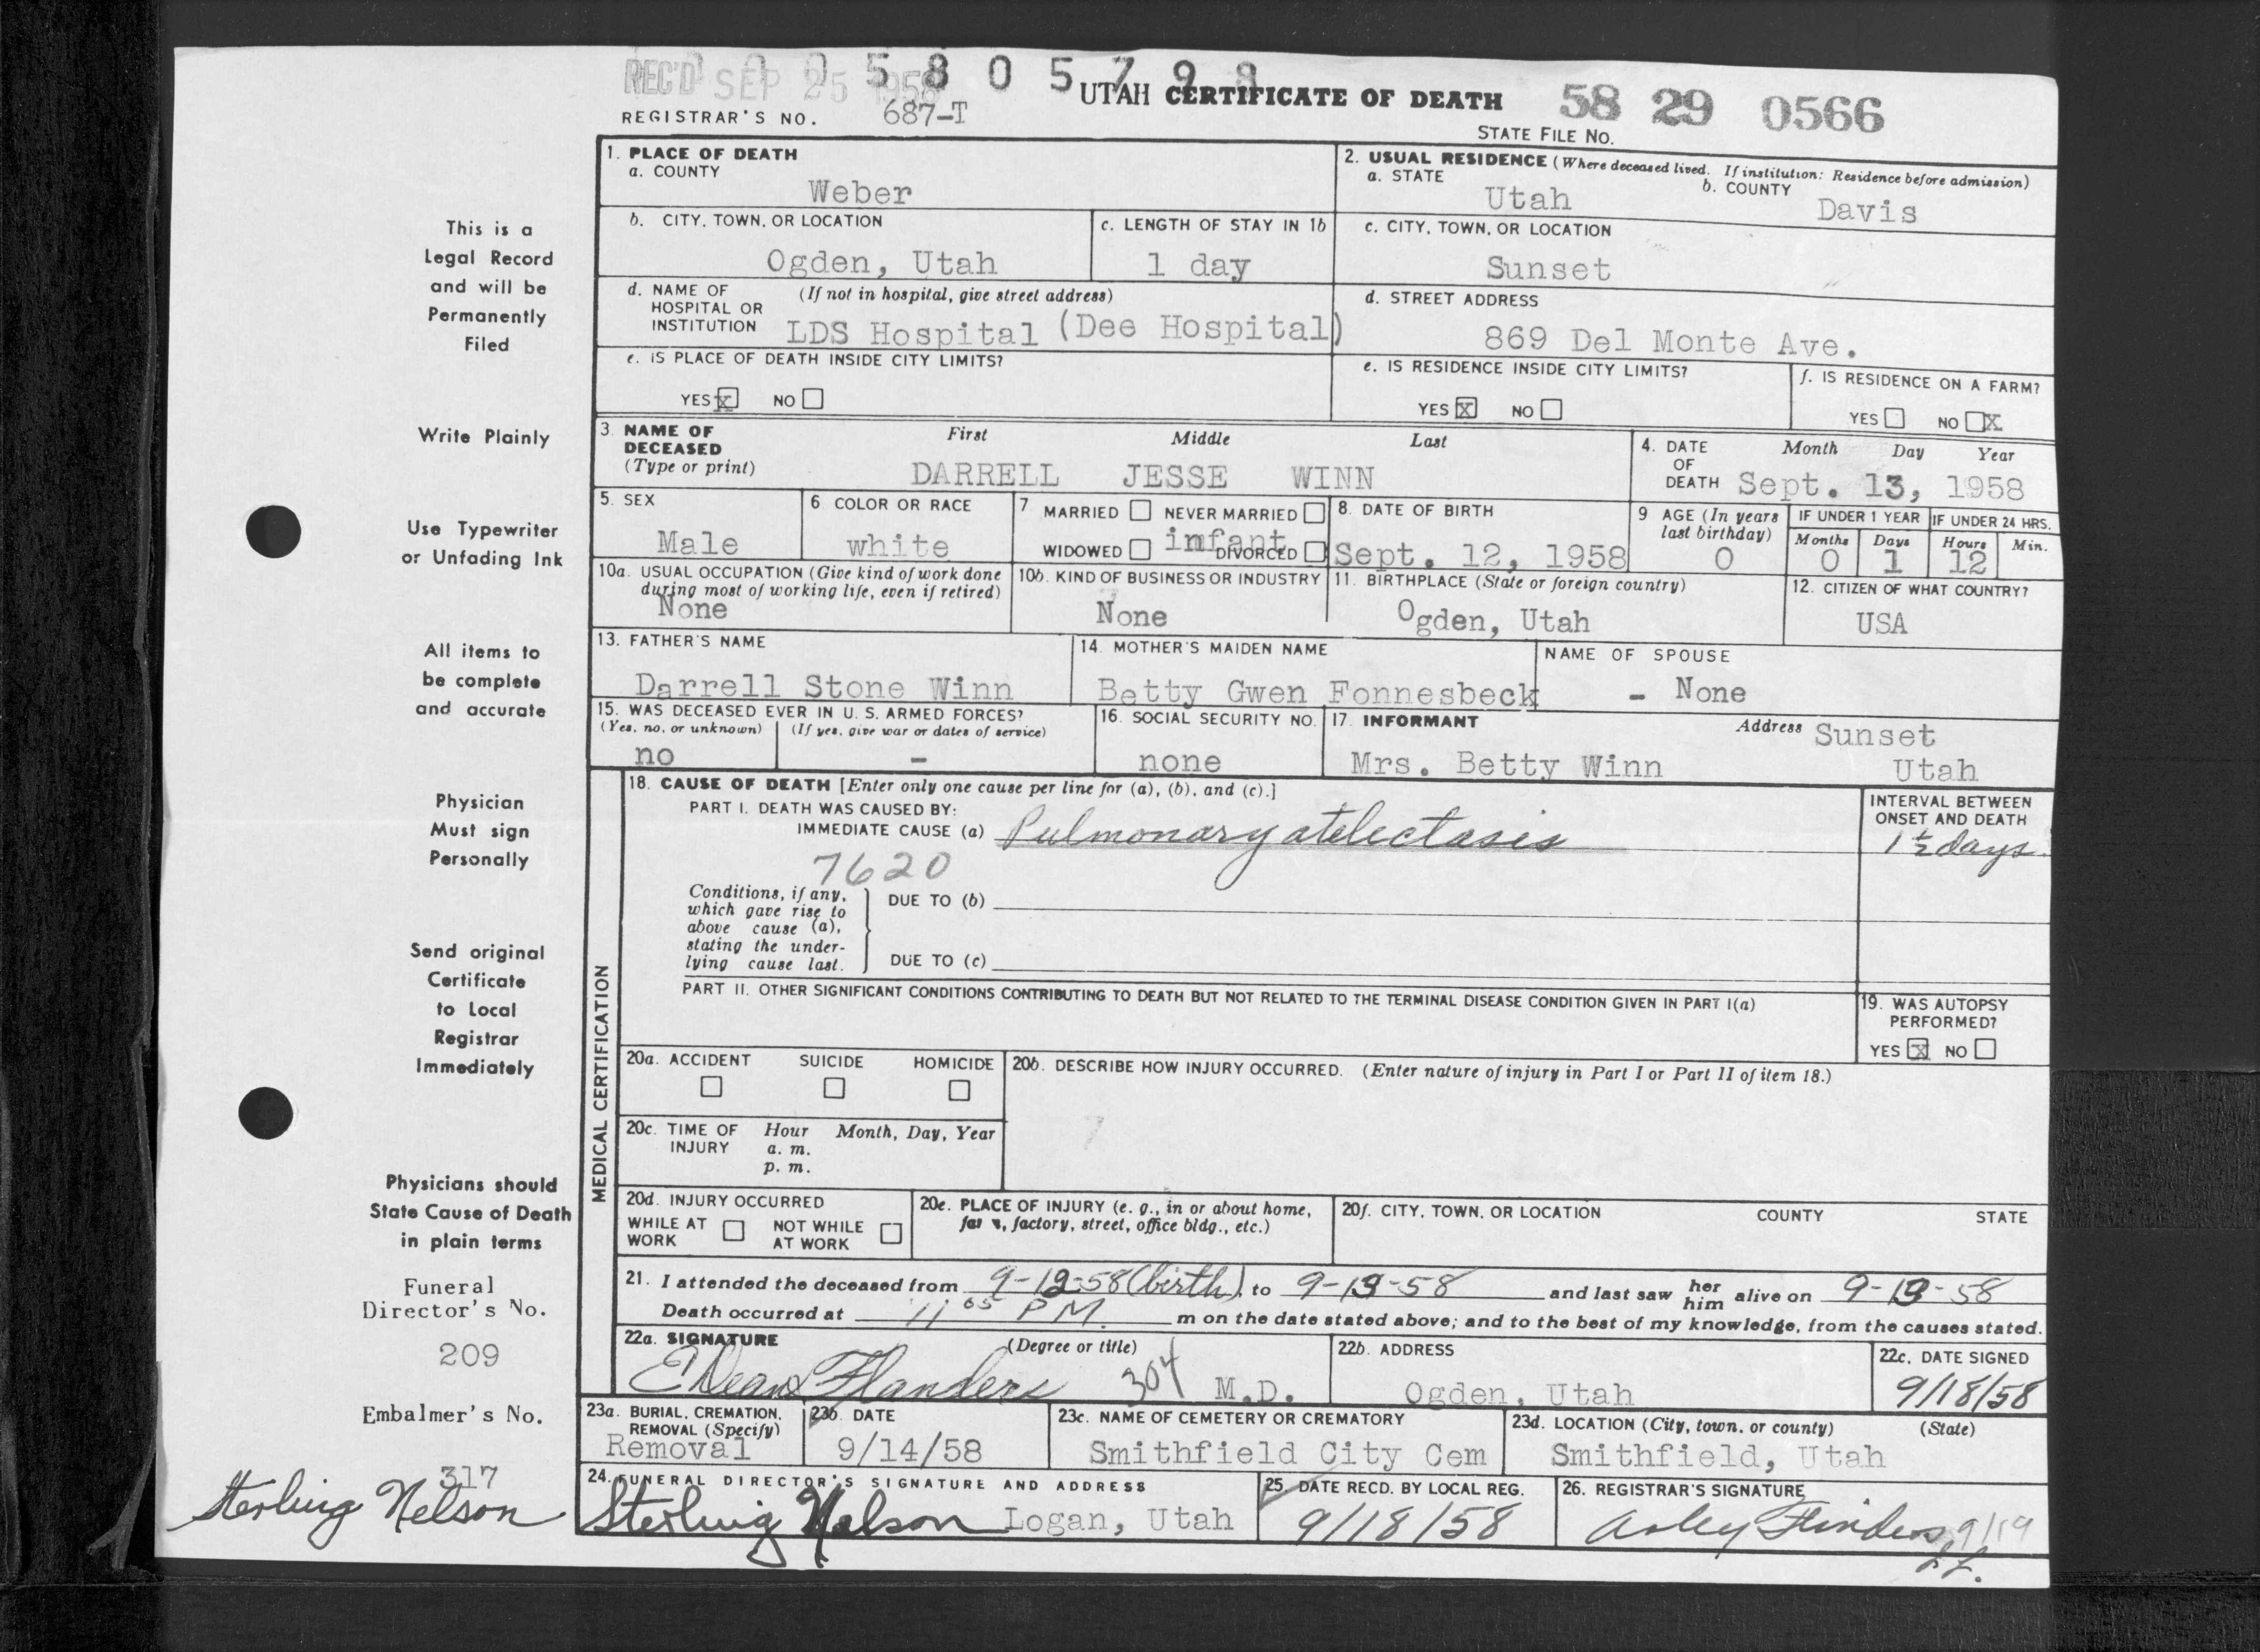 REC'D SEP 25 1958
0 0 5 8 0 5 7 9 8
UTAH CERTIFICATE OF DEATH
58 29 0566
REGISTRAR'S NO. 687-T
STATE FILE NO.
This is a
Legal Record
and will be
Permanently
Filed
Write Plainly
Use Typewriter
or Unfading Ink
All items to
be complete
and accurate
Physician
Must sign
Personally
Send original
Certificate
to Local
Registrar
Immediately
Physicians should
State Cause of Death
in plain terms
Funeral
Director's No.
209
Embalmer's No.
317
Sterling Nelson
1. PLACE OF DEATH
a. COUNTY
Weber
2. USUAL RESIDENCE (Where deceased lived. If institution: Residence before admission)
a. STATE
Utah
b. COUNTY
Davis
b. CITY, TOWN, OR LOCATION
Ogden, Utah
c. LENGTH OF STAY IN 1b
1 day
c. CITY, TOWN, OR LOCATION
Sunset
d. NAME OF (If not in hospital, give street address)
HOSPITAL OR
INSTITUTION LDS Hospital (Dee Hospital)
d. STREET ADDRESS
869 Del Monte Ave.
e. IS PLACE OF DEATH INSIDE CITY LIMITS?
YES X NO
e. IS RESIDENCE INSIDE CITY LIMITS?
YES X NO
f. IS RESIDENCE ON A FARM?
YES NO X
3. NAME OF First Middle Last
DECEASED
(Type or print) DARRELL JESSE WINN
4. DATE Month Day Year
OF
DEATH Sept. 13, 1958
5. SEX
Male
6 COLOR OR RACE
white
7 MARRIED NEVER MARRIED
WIDOWED infant DIVORCED
8. DATE OF BIRTH
Sept. 12, 1958
9 AGE (In years
last birthday)
0
IF UNDER 1 YEAR
Months Days
0 1
IF UNDER 24 HRS.
Hours Min.
12
10a. USUAL OCCUPATION (Give kind of work done
during most of working life, even if retired)
None
10b. KIND OF BUSINESS OR INDUSTRY
None
11. BIRTHPLACE (State or foreign country)
Ogden, Utah
12. CITIZEN OF WHAT COUNTRY?
USA
13. FATHER'S NAME
Darrell Stone Winn
14. MOTHER'S MAIDEN NAME
Betty Gwen Fonnesbeck
NAME OF SPOUSE
- None
15. WAS DECEASED EVER IN U. S. ARMED FORCES?
(Yes, no, or unknown) (If yes, give war or dates of service)
no -
16. SOCIAL SECURITY NO.
none
17. INFORMANT Address Sunset
Mrs. Betty Winn Utah
MEDICAL CERTIFICATION
18. CAUSE OF DEATH [Enter only one cause per line for (a), (b), and (c).]
PART I. DEATH WAS CAUSED BY:
IMMEDIATE CAUSE (a) Pulmonary atelectasis
INTERVAL BETWEEN
ONSET AND DEATH
1 1/2 days.
7620
Conditions, if any,
which gave rise to
above cause (a),
stating the under-
lying cause last.
DUE TO (b)
DUE TO (c)
PART II. OTHER SIGNIFICANT CONDITIONS CONTRIBUTING TO DEATH BUT NOT RELATED TO THE TERMINAL DISEASE CONDITION GIVEN IN PART I(a)
19. WAS AUTOPSY
PERFORMED?
YES X NO
20a. ACCIDENT SUICIDE HOMICIDE
20b. DESCRIBE HOW INJURY OCCURRED. (Enter nature of injury in Part I or Part II of item 18.)
20c. TIME OF Hour Month, Day, Year
INJURY a. m.
p. m.
20d. INJURY OCCURRED
WHILE AT NOT WHILE
WORK AT WORK
20e. PLACE OF INJURY (e. g., in or about home,
farm, factory, street, office bldg., etc.)
20f. CITY, TOWN, OR LOCATION COUNTY STATE
21. I attended the deceased from 9-12-58 (birth), to 9-13-58 and last saw her him alive on 9-13-58
Death occurred at 11 05 P M. m on the date stated above; and to the best of my knowledge, from the causes stated.
22a. SIGNATURE (Degree or title)
E Dean Flanders 304 M.D.
22b. ADDRESS
Ogden, Utah
22c. DATE SIGNED
9/18/58
23a. BURIAL, CREMATION,
REMOVAL (Specify)
Removal
23b. DATE
9/14/58
23c. NAME OF CEMETERY OR CREMATORY
Smithfield City Cem
23d. LOCATION (City, town, or county) (State)
Smithfield, Utah
24. FUNERAL DIRECTOR'S SIGNATURE AND ADDRESS
Sterling Nelson Logan, Utah
25. DATE RECD. BY LOCAL REG.
9/18/58
26. REGISTRAR'S SIGNATURE
Arley Flinders 9/19